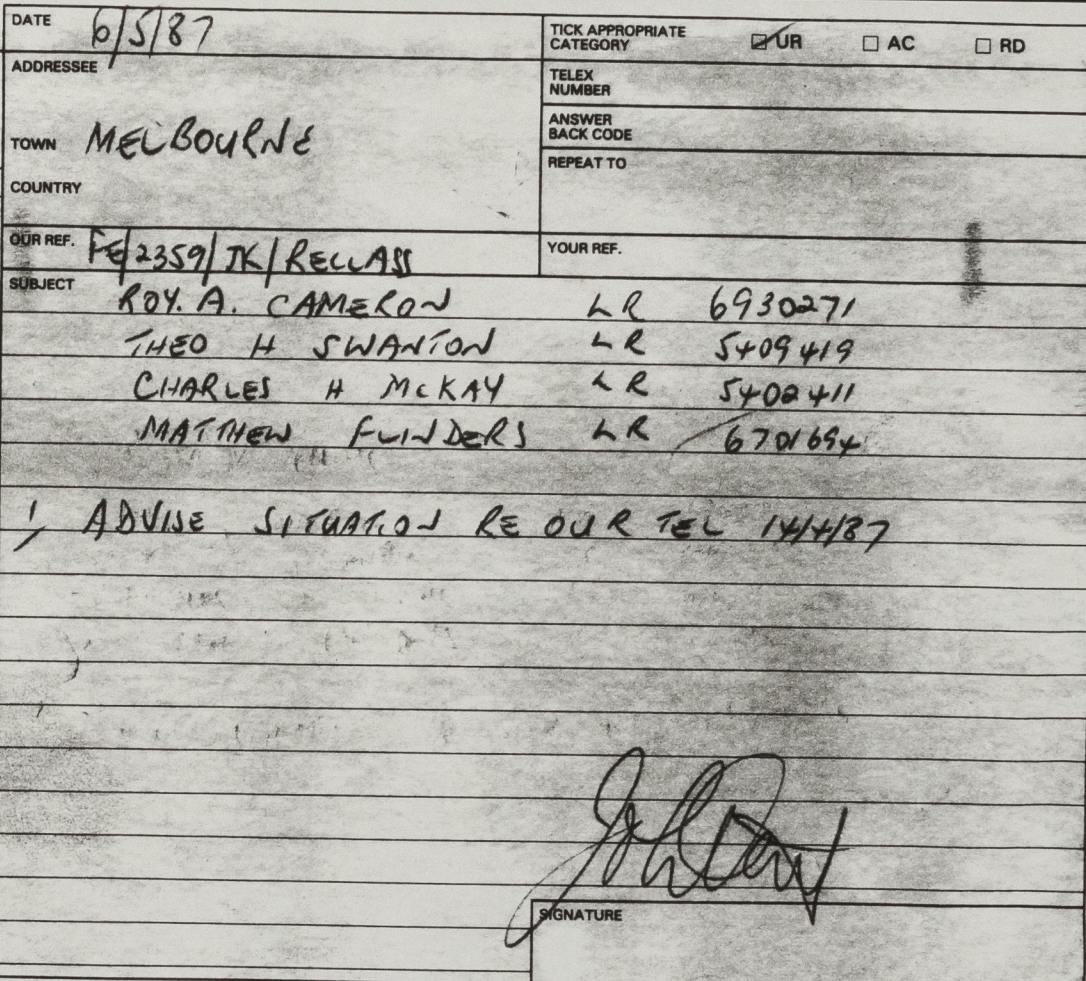 DATE 6/5/87
TICK APPROPRIATE CATEGORY ☑ UR ☐ AC ☐ RD
ADDRESSEE
TELEX NUMBER
ANSWER BACK CODE
TOWN MELBOURNE
REPEAT TO
COUNTRY
OUR REF. FE/2359/JK/RECLASS
YOUR REF.
SUBJECT
ROY. A. CAMERON LR 6930271
THEO H SWANTON LR 5409419
CHARLES H McKAY LR 5402411
MATTHEW FLINDERS LR 6701694
1, ADVISE SITUATION RE OUR TEL 14/4/87
SIGNATURE